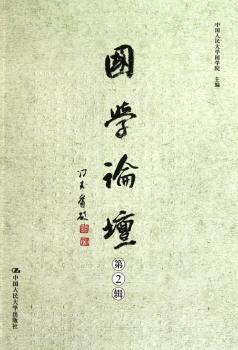 中国人民大学国学院 主编
國學論壇
冯其庸題
第2辑
中国人民大学出版社